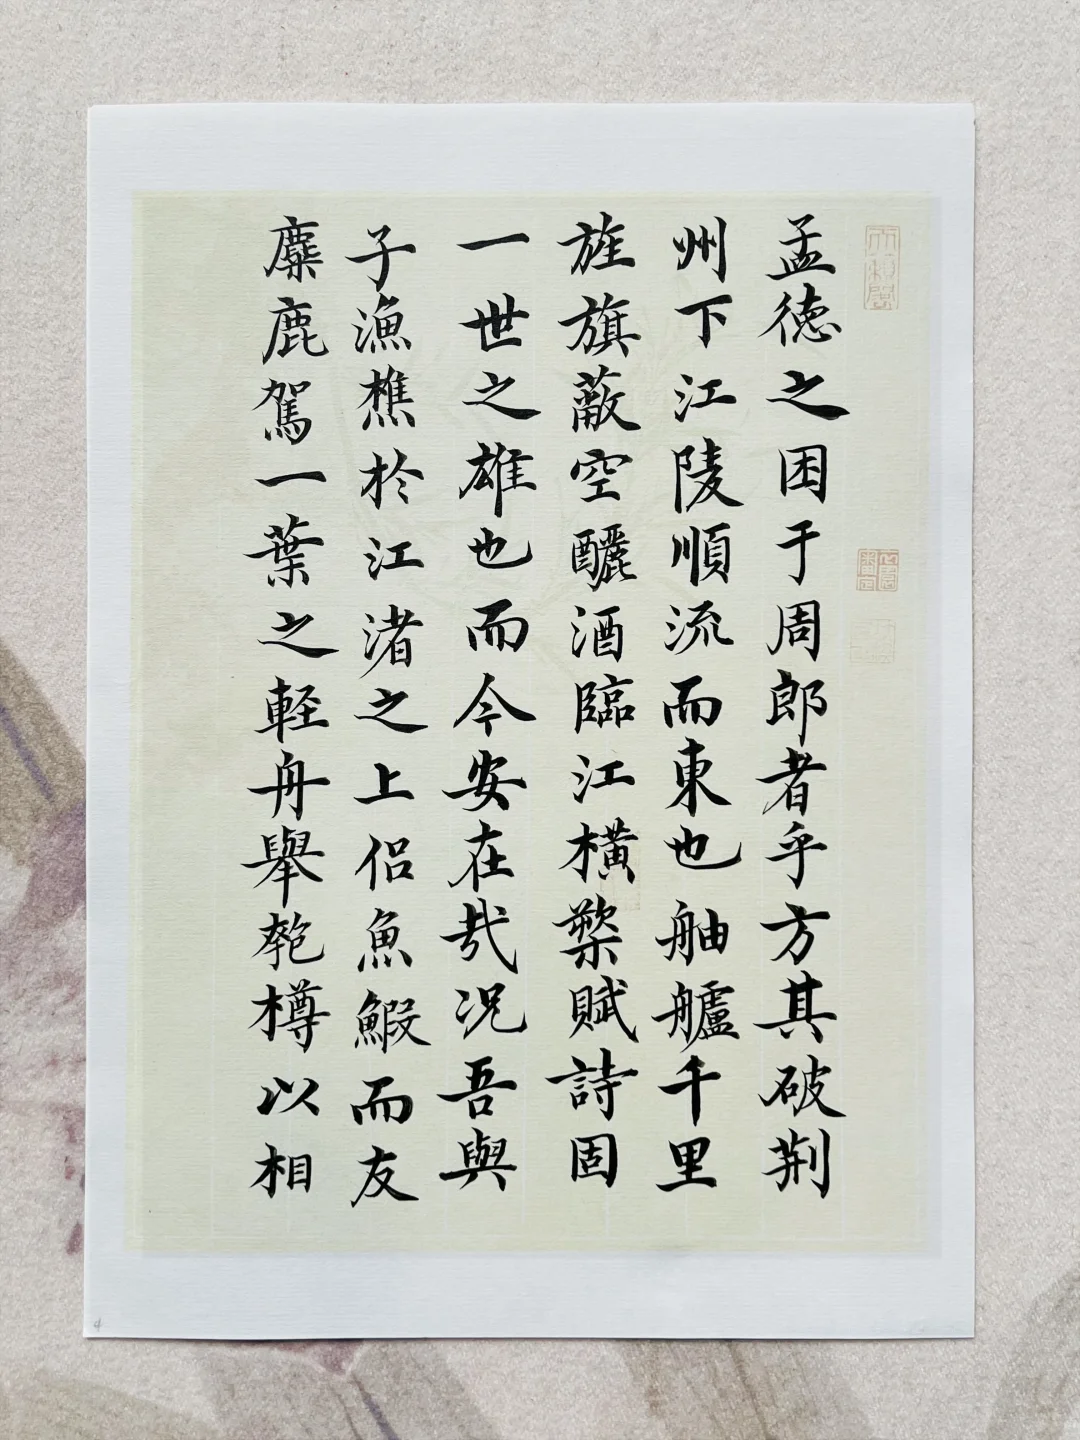 孟德之困于周郎者乎方其破荆
州下江陵順流而東也舳艫千里
旌旗蔽空釃酒臨江橫槊賦詩固
一世之雄也而今安在哉况吾與
子漁樵於江渚之上侣魚鰕而友
麋鹿駕一葉之軽舟舉匏樽以相
4